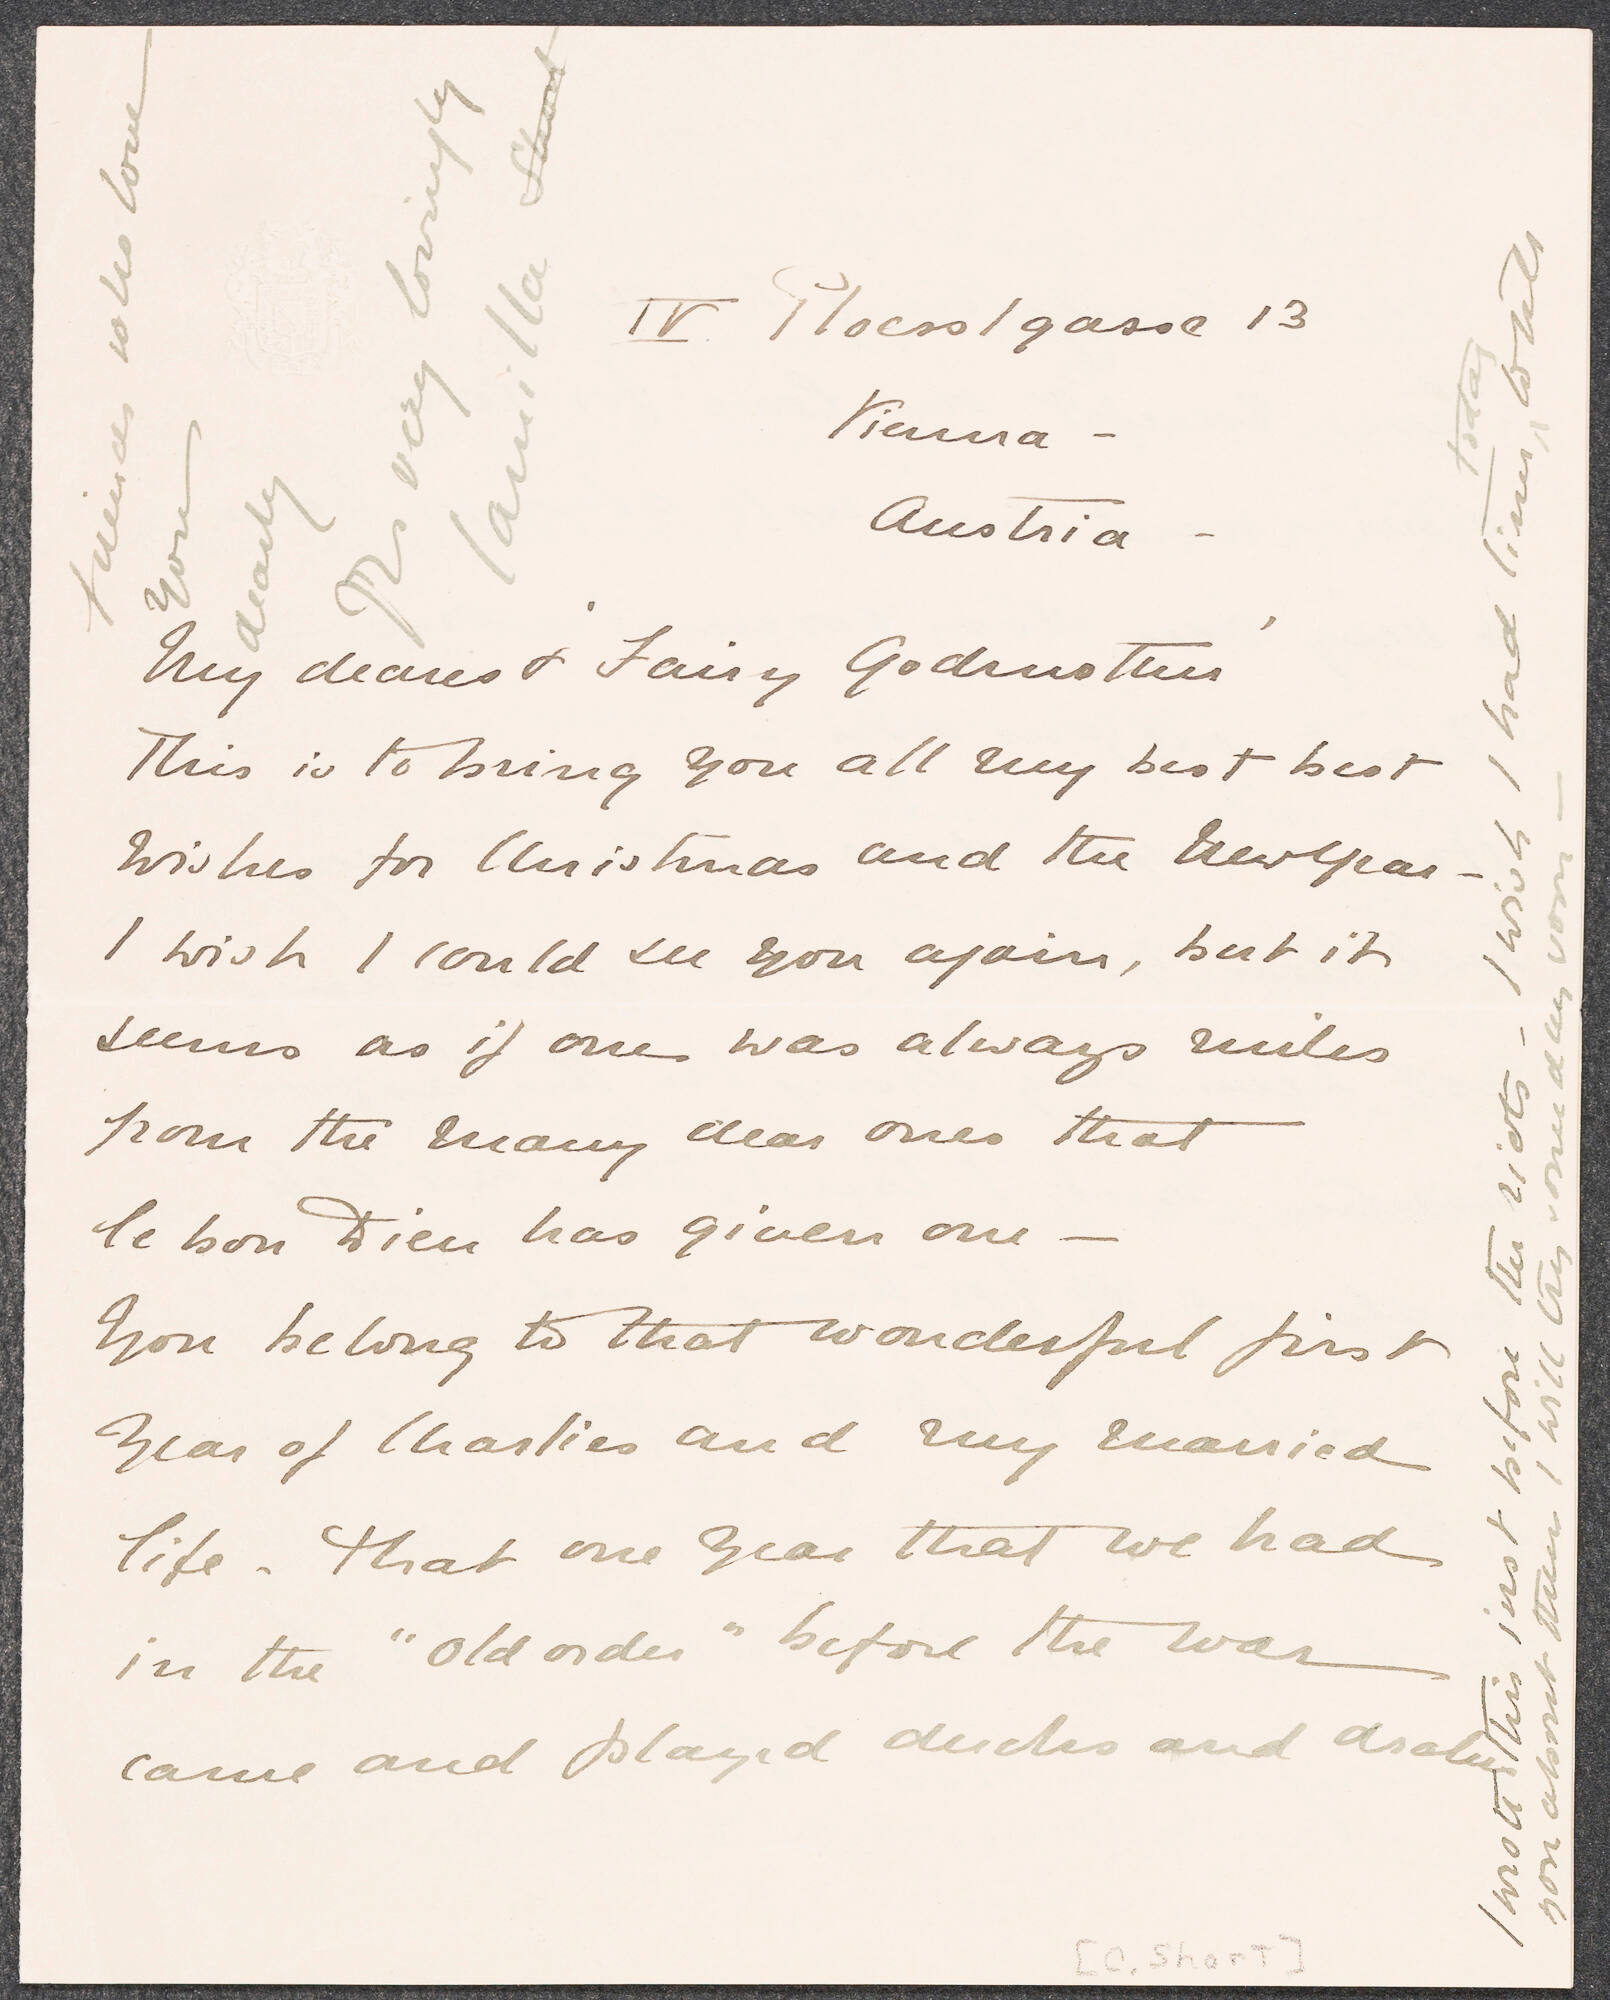 IV. Ploesslgasse 13
Vienna -
Austria -
My dearest Fairy Godmother
This is to bring you all my best best
wishes for Christmas and the New Year -
I wish I could see you again, but it
seems as if one was always miles
from the many dear ones that
le bon Dieu has given one -
You belong to that wonderful first
year of Charlies and my married
life - That one year that we had
in the "old order" before the war
came and played ducks and drakes
friends who love
you
dearly
Yrs very lovingly
Camilla Short
I wrote this just before the riots - I wish I had time today to tell
you about them I will try someday soon -
[C. Short]